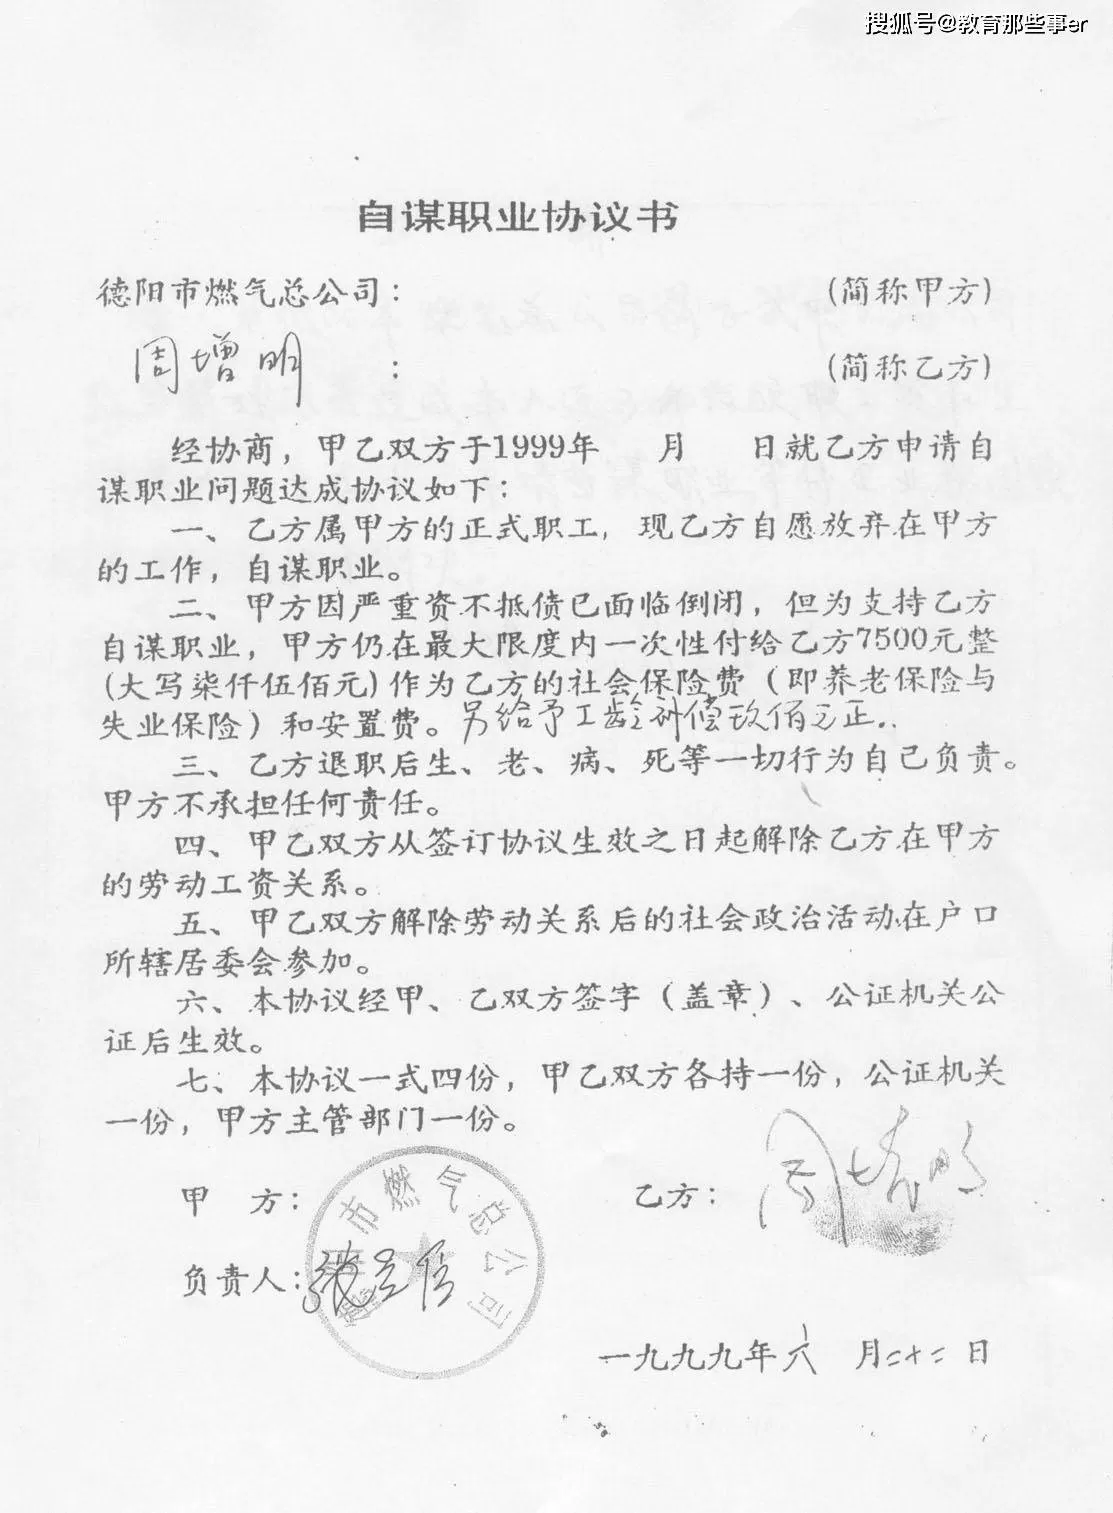 搜狐号@教育那些事er
自谋职业协议书
德阳市燃气总公司: (简称甲方)
周增明 : (简称乙方)
经协商，甲乙双方于1999年 月 日就乙方申请自
谋职业问题达成协议如下:
一、乙方属甲方的正式职工, 现乙方自愿放弃在甲方
的工作，自谋职业。
二、甲方因严重资不抵债已面临倒闭，但为支持乙方
自谋职业，甲方仍在最大限度内一次性付给乙方7500元整
(大写柒仟伍佰元)作为乙方的社会保险费（即养老保险与
失业保险）和安置费。另给予工龄补偿玖佰元正..
三、乙方退职后生、老、病、死等一切行为自己负责。
甲方不承担任何责任。
四、甲乙双方从签订协议生效之日起解除乙方在甲方
的劳动工资关系。
五、甲乙双方解除劳动关系后的社会政治活动在户口
所辖居委会参加。
六、本协议经甲、乙双方签字（盖章）、公证机关公
证后生效。
七、本协议一式四份，甲乙双方各持一份，公证机关
一份，甲方主管部门一份。
甲 方: 乙方: 周增明
市燃气总公司
负责人:
一九九九年六 月二十二日